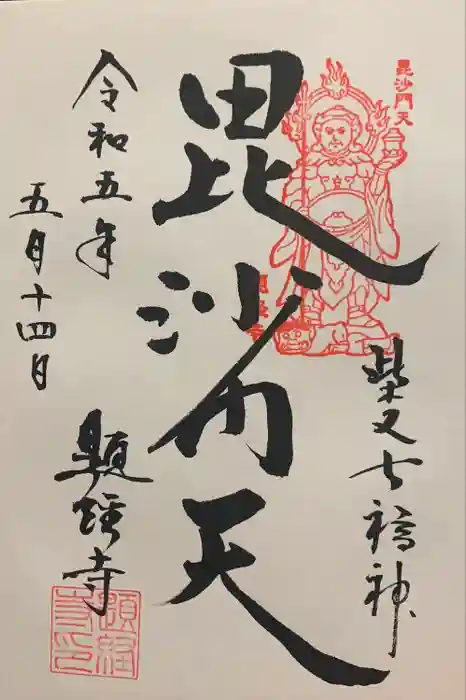 毘沙門天
柴又七福神
毘沙門天
令和五年
五月十四日
題経寺
題経寺印